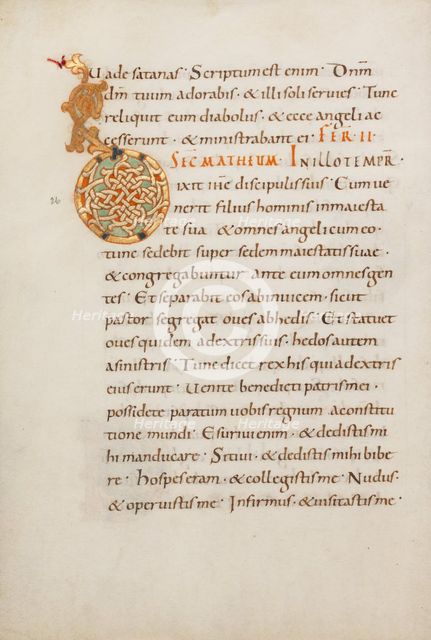 Uade satanas · Scriptum est enim · Dnm̄
dm̄ tuum adorabis · & illi soli seruies · Tunc
reliquit eum diabolus · & ecce angeli ac
cesserunt · & ministrabant ei · FER·II·
SEC MATHEUM · IN ILLO TEMPR̄ ·
26
D
ixit ihc̄ discipulis suis · Cum ue
nerit filius hominis in maiesta
te sua · & omnes angeli cum eo ·
tunc sedebit super sedem maiestatis suae ·
& congregabuntur ante eum omnes gen
tes · Et separabit eos abinuicem · sicut
pastor segregat oues ab hedis · Et statuet
oues quidem a dextris suis · hedos autem
a sinistris · Tunc dicet rex his qui a dextris
eius erunt · Uenite benedicti patris mei ·
possidete paratum uobis regnum a constitu
tione mundi · Esuriui enim · & dedistis mi
hi manducare · Sitiui · & dedistis mihi bibe
re · Hospes eram · & collegistis me · Nudus ·
& operuistis me · Infirmus · & uisitastis me ·
Heritage Heritage Heritage
Heritage Heritage Heritage